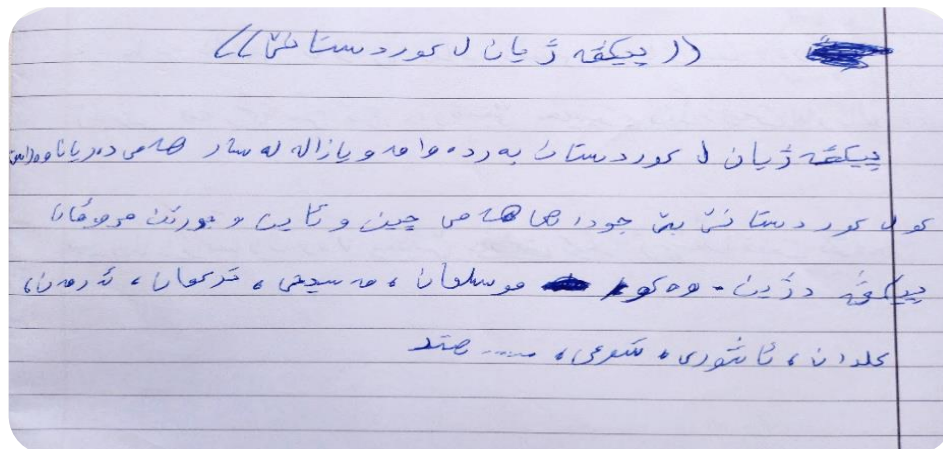 ((پیکڤە ژیان ل کوردستانێ))
پیکڤە ژیان ل کوردستان بەردەوامە و یازالە لەسار هەمی دەریانا
کو ل کوردستانێ بێ جوداهی هەمی چین و ئاین و جورێن مروڤان
پیکڤە دژین. وەکو موسلمان، مەسیحی، ترکمان، ئەرمەن،
کلدان، ئاشوری، شەرعی، ..... هتد